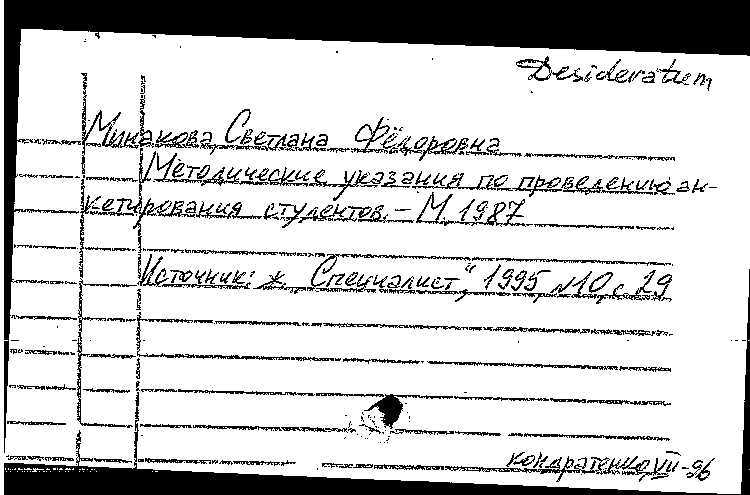 Desideratum
Минакова, Светлана Фёдоровна
Методические указания по проведению ан-
кетирования студентов. – М., 1987
Источник: ж. „Специалист", 1995, №10, с. 29
Кондратенко, VII-96